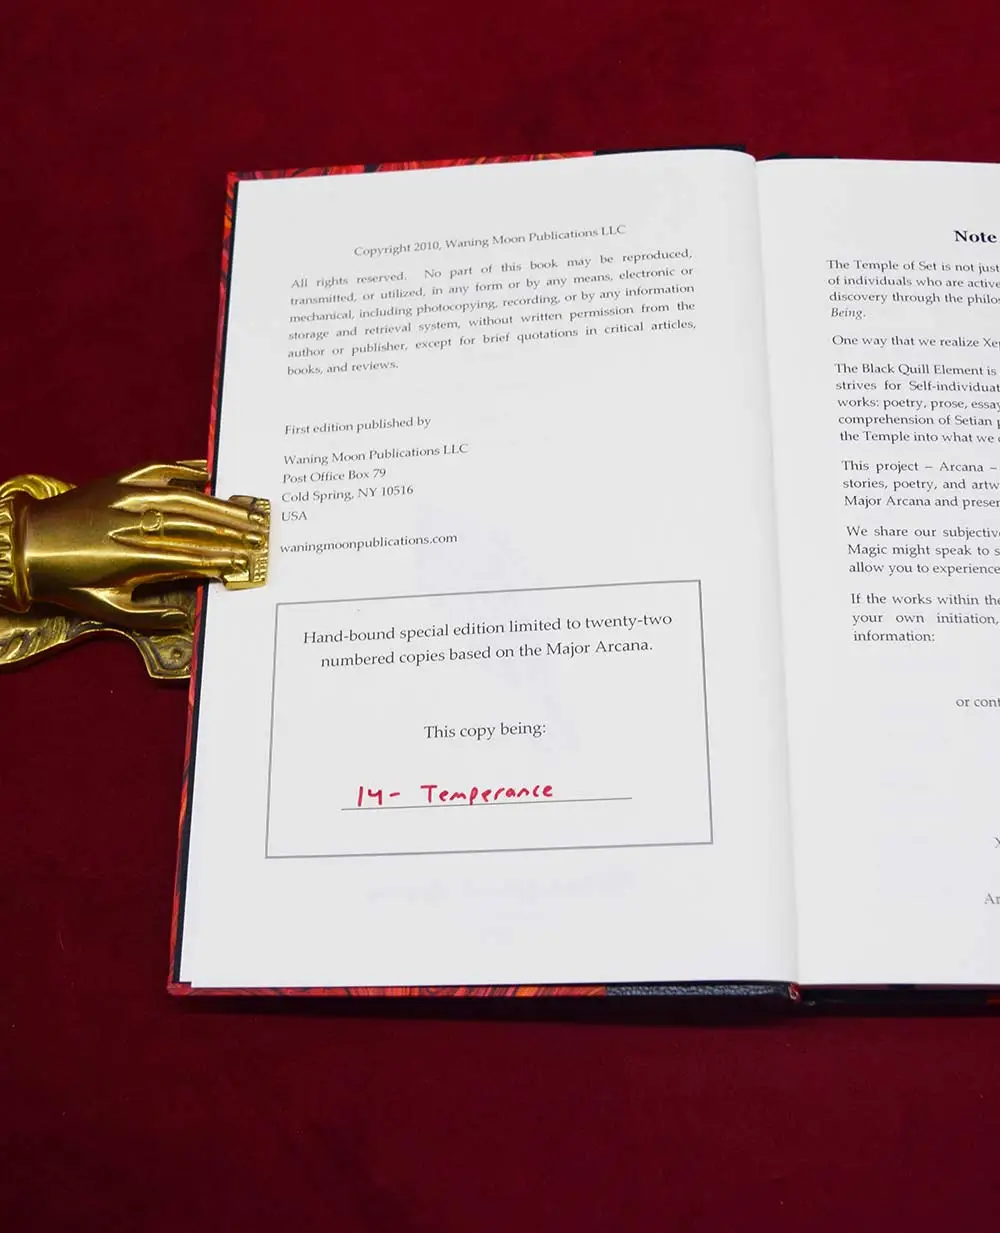 Copyright 2010, Waning Moon Publications LLC
All rights reserved. No part of this book may be reproduced,
transmitted, or utilized, in any form or by any means, electronic or
mechanical, including photocopying, recording, or by any information
storage and retrieval system, without written permission from the
author or publisher, except for brief quotations in critical articles,
books, and reviews.
First edition published by
Waning Moon Publications LLC
Post Office Box 79
Cold Spring, NY 10516
USA
waningmoonpublications.com
Hand-bound special edition limited to twenty-two
numbered copies based on the Major Arcana.
This copy being:
14- Temperance
Note
The Temple of Set is not just
of individuals who are active
discovery through the philos
Being.
One way that we realize Xe
The Black Quill Element is
strives for Self-individuat
works: poetry, prose, essay
comprehension of Setian
the Temple into what we
This project – Arcana –
stories, poetry, and artw
Major Arcana and presen
We share our subjectiv
Magic might speak to s
allow you to experience
If the works within the
your own initiation,
information:
or cont